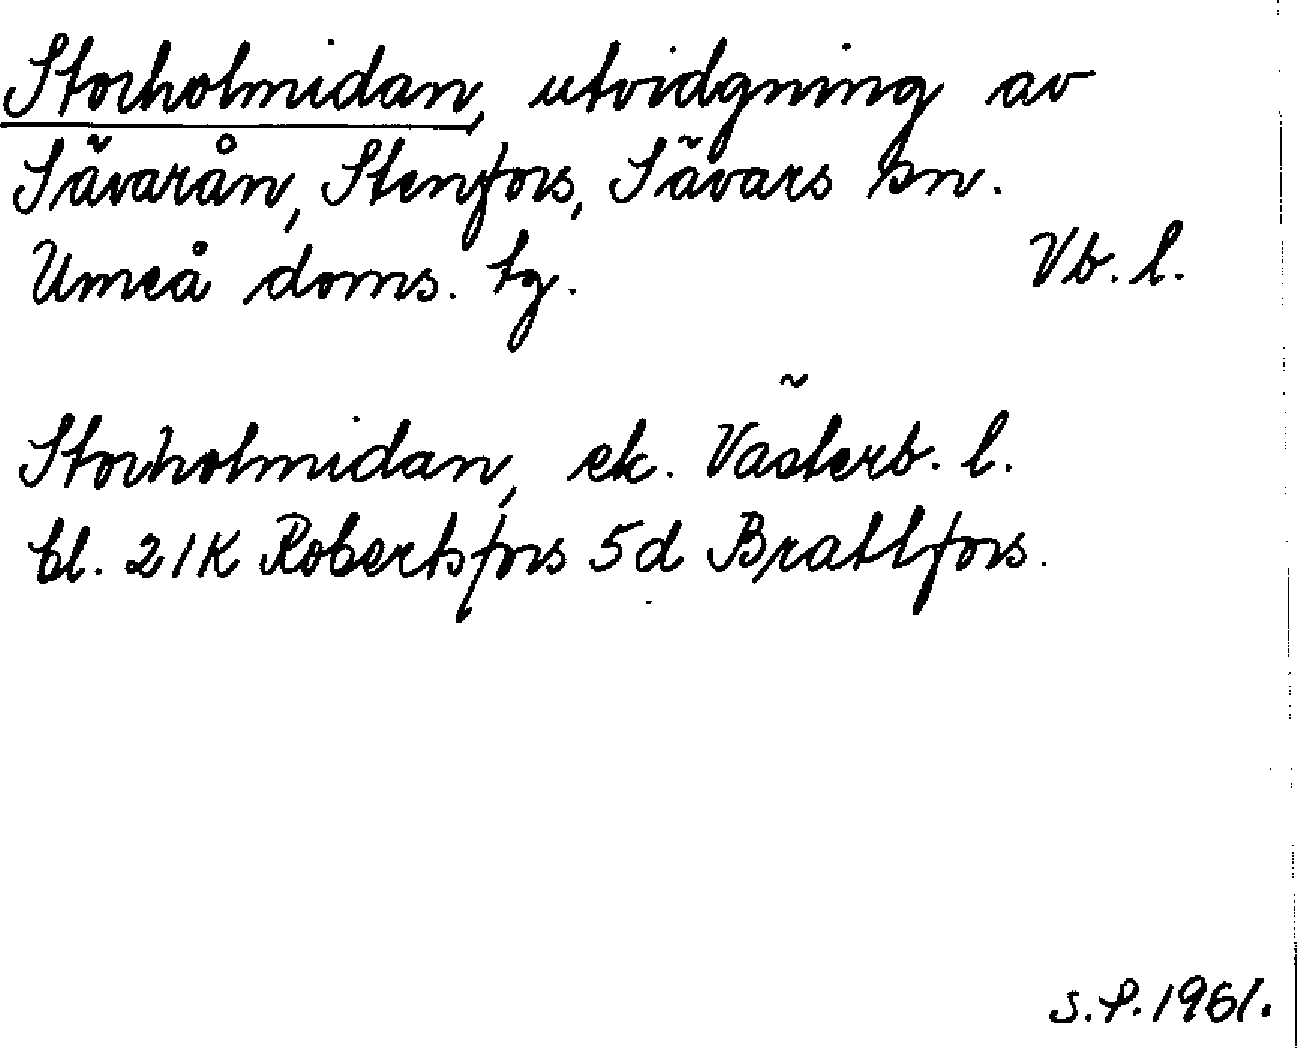 Storholmidan, utvidgning av
Sävarån, Stenfors, Sävars sn.
Umeå doms. tg. Vb. l.
Storholmidan, ek. Västerb. l.
bl. 21K Robertsfors 5d Brattfors.
S.P. 1961.